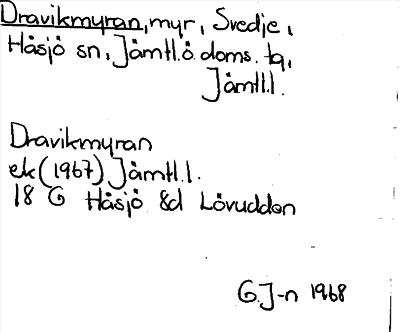 Dravikmyran, myr, Svedje,
Håsjö sn, Jämtl.ö. doms. tg,
Jämtl.l.
Dravikmyran
ek (1967) Jämtl.l.
18 G Håsjö 8d Lövuddon
G.J-n 1968